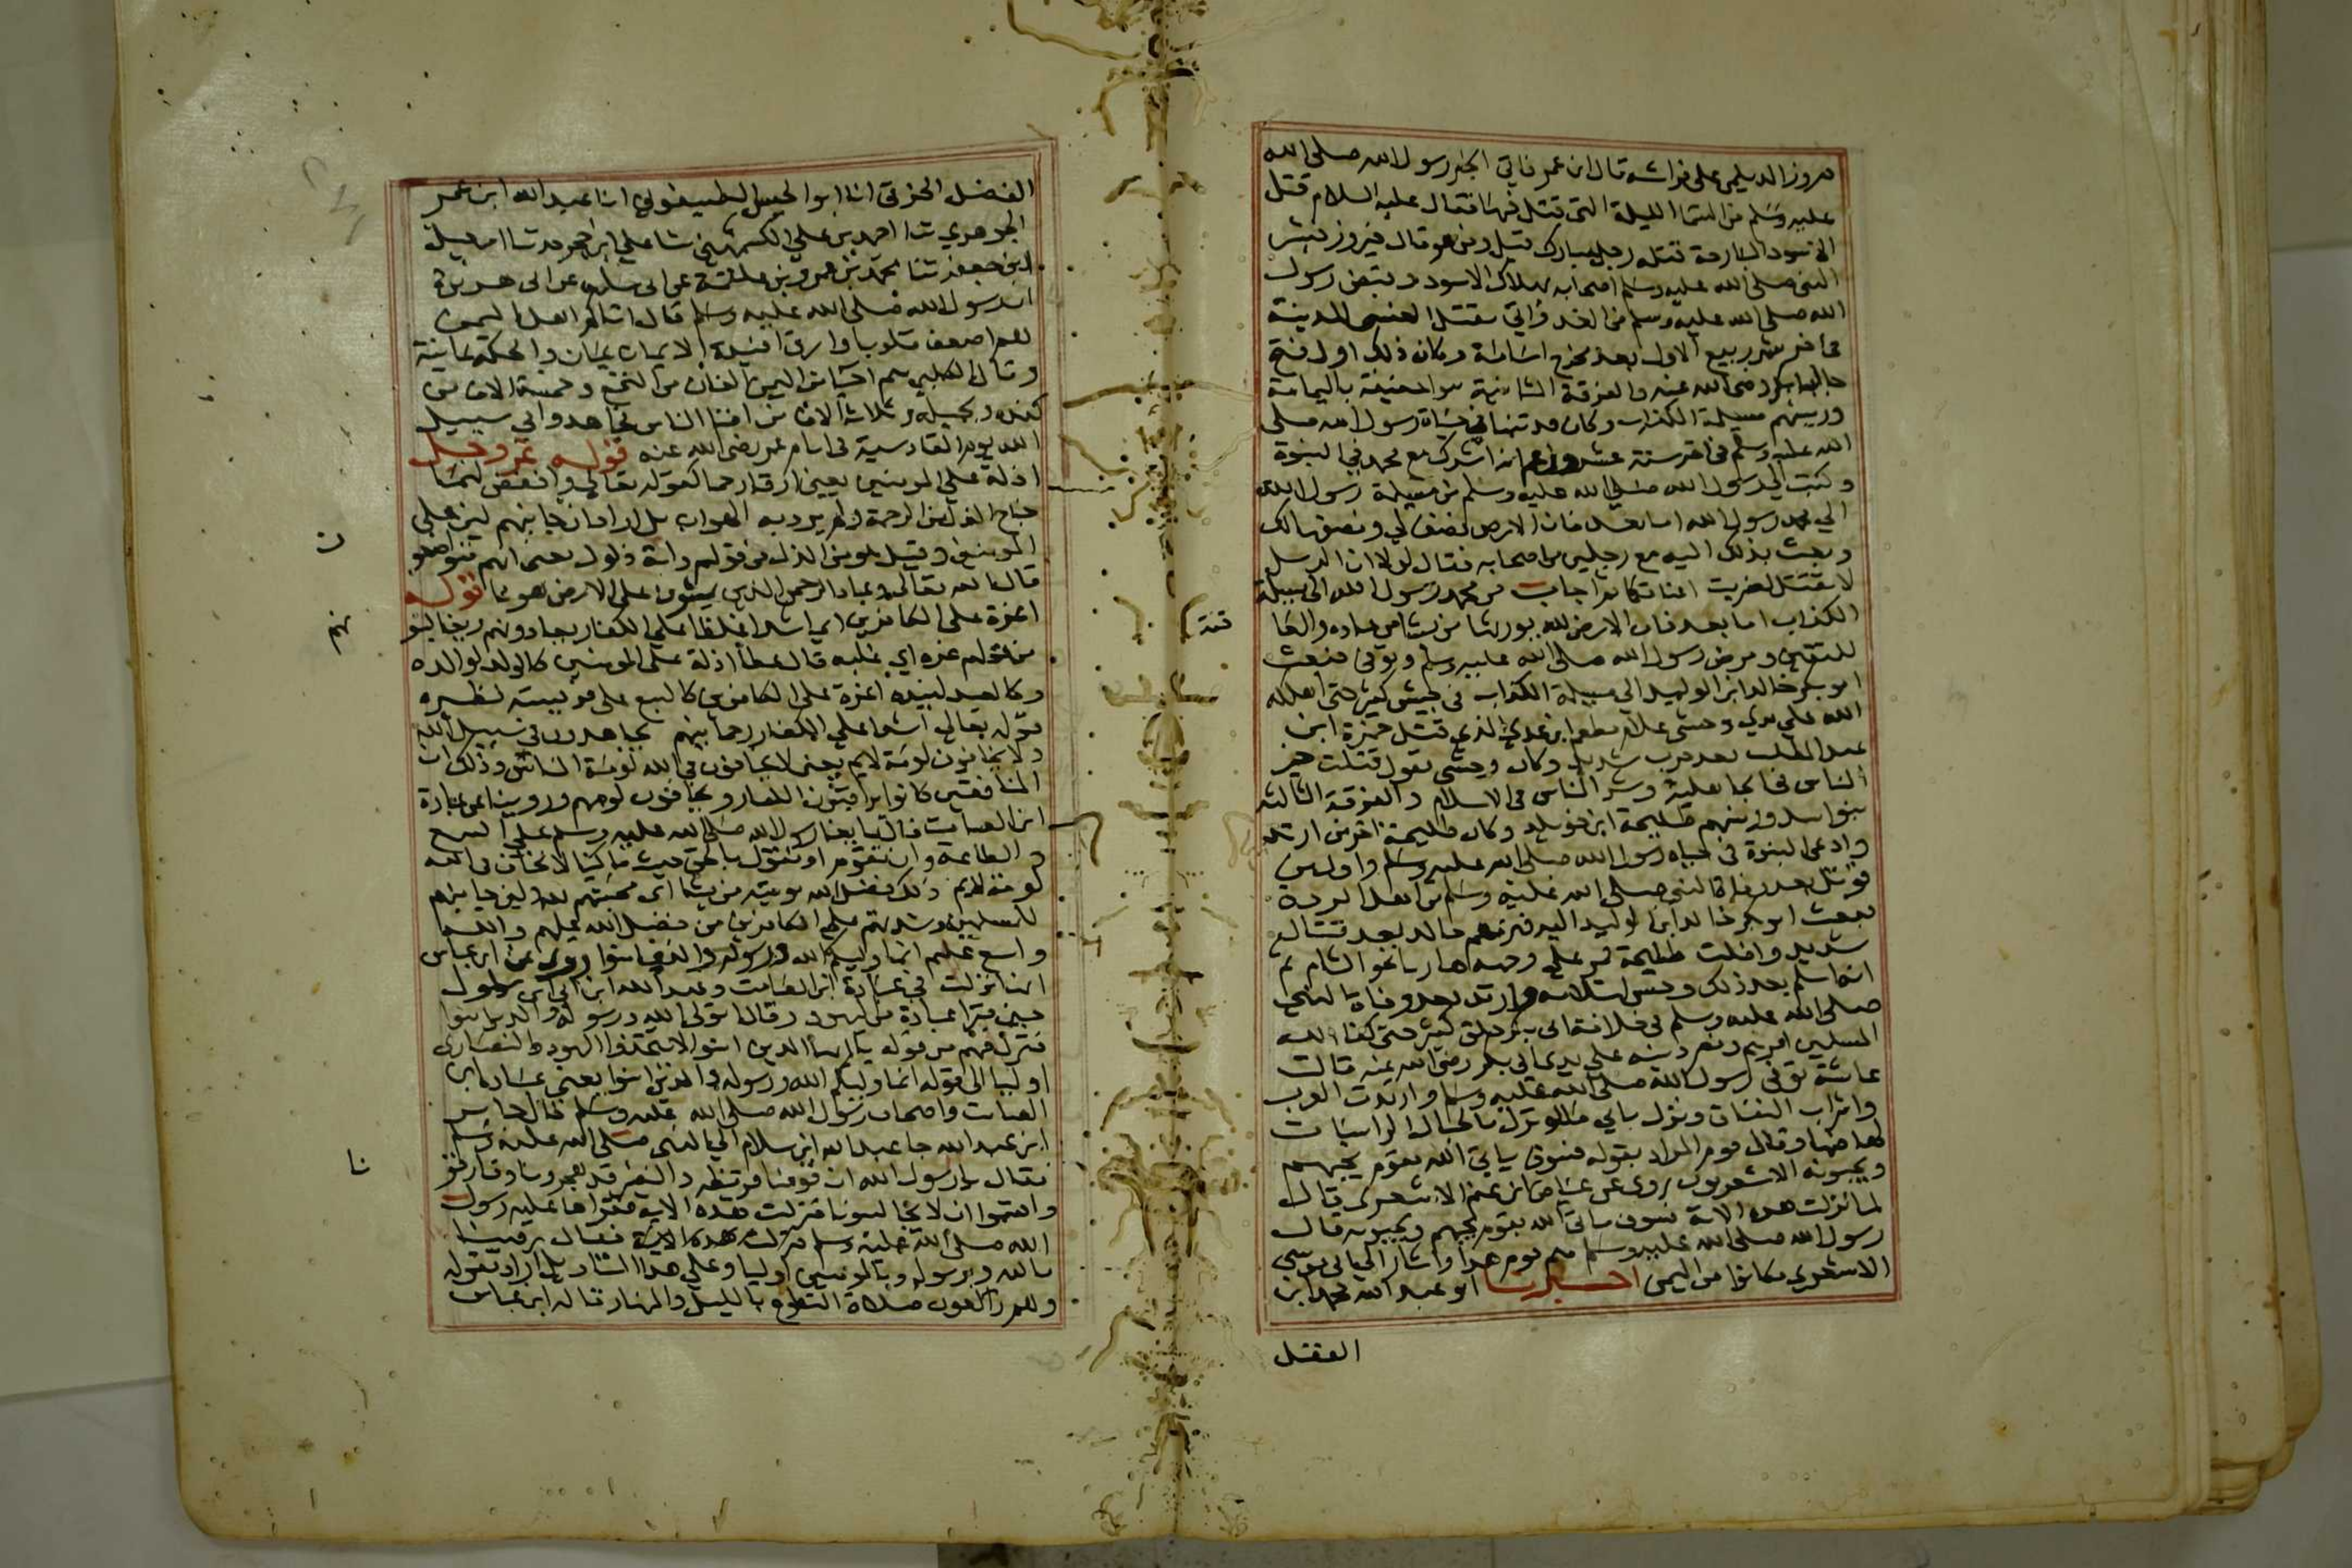 فيروز الديلمي على فراشه قال ابن عمر فاتي الخبر رسول الله صلى الله
عليه وسلم من السما الليلة التي قتل فيها فقال عليه السلام قتل
الاسود البارحة قتله رجل مبارك قيل ومن هو قال فيروز فبشر
النبي صلى الله عليه وسلم اصحابه بهلاك الاسود وقبض رسول
الله صلى الله عليه وسلم من الغد واتي بقتل العنسي المدينة
في اخر شهر ربيع الاول بعد مخرج اسامة وكان ذلك اول فتح
جا ابا بكر رضى الله عنه والفرقة الثانية بنوا حنيفة باليمامة
وريسهم مسيلمة الكذاب وكان قد تنبا في حياة رسول الله صلى
الله عليه وسلم في اخر سنة عشر وزعم انه اشرك مع محمد في النبوة
وكتب الي رسول الله صلى الله عليه وسلم من مسيلمة رسول الله
الي محمد رسول الله اما بعد فان الارض نصفها لي ونصفها لك
وبعث بذلك اليه مع رجلين من اصحابه فقال لولا ان الرسل
لا تقتل لضربت اعناقكما ثم اجاب من محمد رسول الله الى مسيلمة
الكذاب اما بعد فان الارض لله يورثها من يشا من عباده والعا
للمتقين ومرض رسول الله صلى الله عليه وسلم وتوفي فبعث
ابو بكر خالد ابن الوليد الي مسيلمة الكذاب في جيش كثير حتى اهلكه
الله على يدي وحشي غلام مطعم ابن عدي الذي قتل حمزة ابن
عبد المطلب بعد حرب شديد وكان وحشي يقول قتلت خير
الناس في الجاهلية وشر الناس في الاسلام والفرقة الثالثة
بنوا اسد وريسهم طليحة ابن خويلد وكان طليحة اخر من ارتد
وادعى النبوة في حياة رسول الله صلى الله عليه وسلم واول من
قوتل بعد وفاة النبي صلى الله عليه وسلم من اهل الردة
فبعث ابو بكر خالد ابن الوليد اليه فهزمهم خالد بعد قتال
شديد وافلت طليحة فمر على وجهه هاربا نحو الشام ثم
انه اسلم بعد ذلك وحسن اسلامه وارتد بعد وفاة النبي
صلى الله عليه وسلم في خلافة ابي بكر خلق كثير حتى كفا الله
المسلمين امرهم ونصر دينه على يدي ابي بكر رضى الله عنه قالت
عائشة توفى رسول الله صلى الله عليه وسلم وارتدت العرب
واشراب النفاق ونزل بابي ما لو نزل بالجبال الراسيات
لهاضها وقال قوم المراد بقوله فسوف ياتي الله بقوم يحبهم
ويحبونه الاشعريون روى عن عياض ابن غنم الاشعري قال
لما نزلت هذه الاية فسوف ياتي الله بقوم يحبهم ويحبونه قال
رسول الله صلى الله عليه وسلم هم قوم هذا واشار الي ابي موسي
الاشعري وكانوا من اليمن اخبرنا ابو عبد الله محمد ابن
الفضل
قبة
الفضل الخرقي انا ابو الحسن الطيسفوني انا عبد الله ابن عمر
الجوهري ثنا احمد بن علي الكشميهني ثنا علي ابن حجر ثنا اسمعيل
ابن جعفر ثنا محمد بن عمرو بن علقمة عن ابي سلمة عن ابي هريرة
ان رسول الله صلى الله عليه وسلم قال اتاكم اهل اليمن
هم اضعف قلوبا وارق افئيدة الايمان يمان والحكمة يمانية
وقال الكلبي هم احيا من اليمن الفان من النخع وخمسة الاف من
كندة وبجيلة وثلاثة الاف من افنا الناس فجاهدوا في سبيل
الله يوم القادسية في ايام عمر رضى الله عنه قوله عز وجل
اذلة على المومنين يعني ارقا رحما كقوله تعالى واخفض لهما
جناح الذل من الرحمة ولم يرد به الهوان بل اراد ان جانبهم لين على
المومنين وقيل هو من الذل من قولهم دابة ذلول يعني انهم متواضعون
قال الله تعالى وعباد الرحمن الذين يمشون على الارض هونا قوله
اعزة على الكافرين اي اشدا غلظا على الكفار يعادونهم ويغالبونهم
من قولهم عزه اي غلبه قال عطا اذلة على المومنين كالولد لوالده
وكالعبد لسيده اعزة على الكافرين كالسبع على فريسته نظيره
قوله تعالى اشدا على الكفار رحما بينهم يجاهدون في سبيل الله
ولا يخافون لومة لايم يعنى لا يخافون في الله لومة الناس وذلك ان
المنافقين كانوا يراقبون الكفار ويخافون لومهم وروينا عن عبادة
ابن الصامت قال بايعنا رسول الله صلى الله عليه وسلم على السمع
والطاعة وان نقوم او نقول بالحق حيث ما كنا لا نخاف في الله
لومة لايم ذلك فضل الله يوتيه من يشا اى محبتهم لله ولين جانبهم
للمسلمين وشدتهم على الكافرين من فضل الله عليهم والله
واسع عليم انما وليكم الله ورسوله والذين امنوا روى عن ابن عباس
انها نزلت في عبادة ابن الصامت وعبد الله ابن ابي ابن سلول
حين تبرا عبادة من اليهود وقال اتولى الله ورسوله والذين امنوا
فنزل فيهم من قوله يا ايها الذين امنوا لا تتخذوا اليهود والنصارى
اوليا الى قوله انما وليكم الله ورسوله والذين امنوا يعني عبادة ابن
الصامت واصحاب رسول الله صلى الله عليه وسلم قال جابر
ابن عبد الله جا عبد الله ابن سلام الي النبي صلى الله عليه وسلم
فقال يا رسول الله ان قومنا قريظة والنضير قد هجرونا وفارقونا
واقسموا ان لا يجالسونا فنزلت هذه الاية فقراها عليه رسول
الله صلى الله عليه وسلم فقال رضينا
بالله وبرسوله وبالمومنين اوليا وعلى هذا التاويل اراد بقوله
وهم راكعون صلاة التطوع بالليل والنهار قاله ابن عباس
ن
نهم
نا